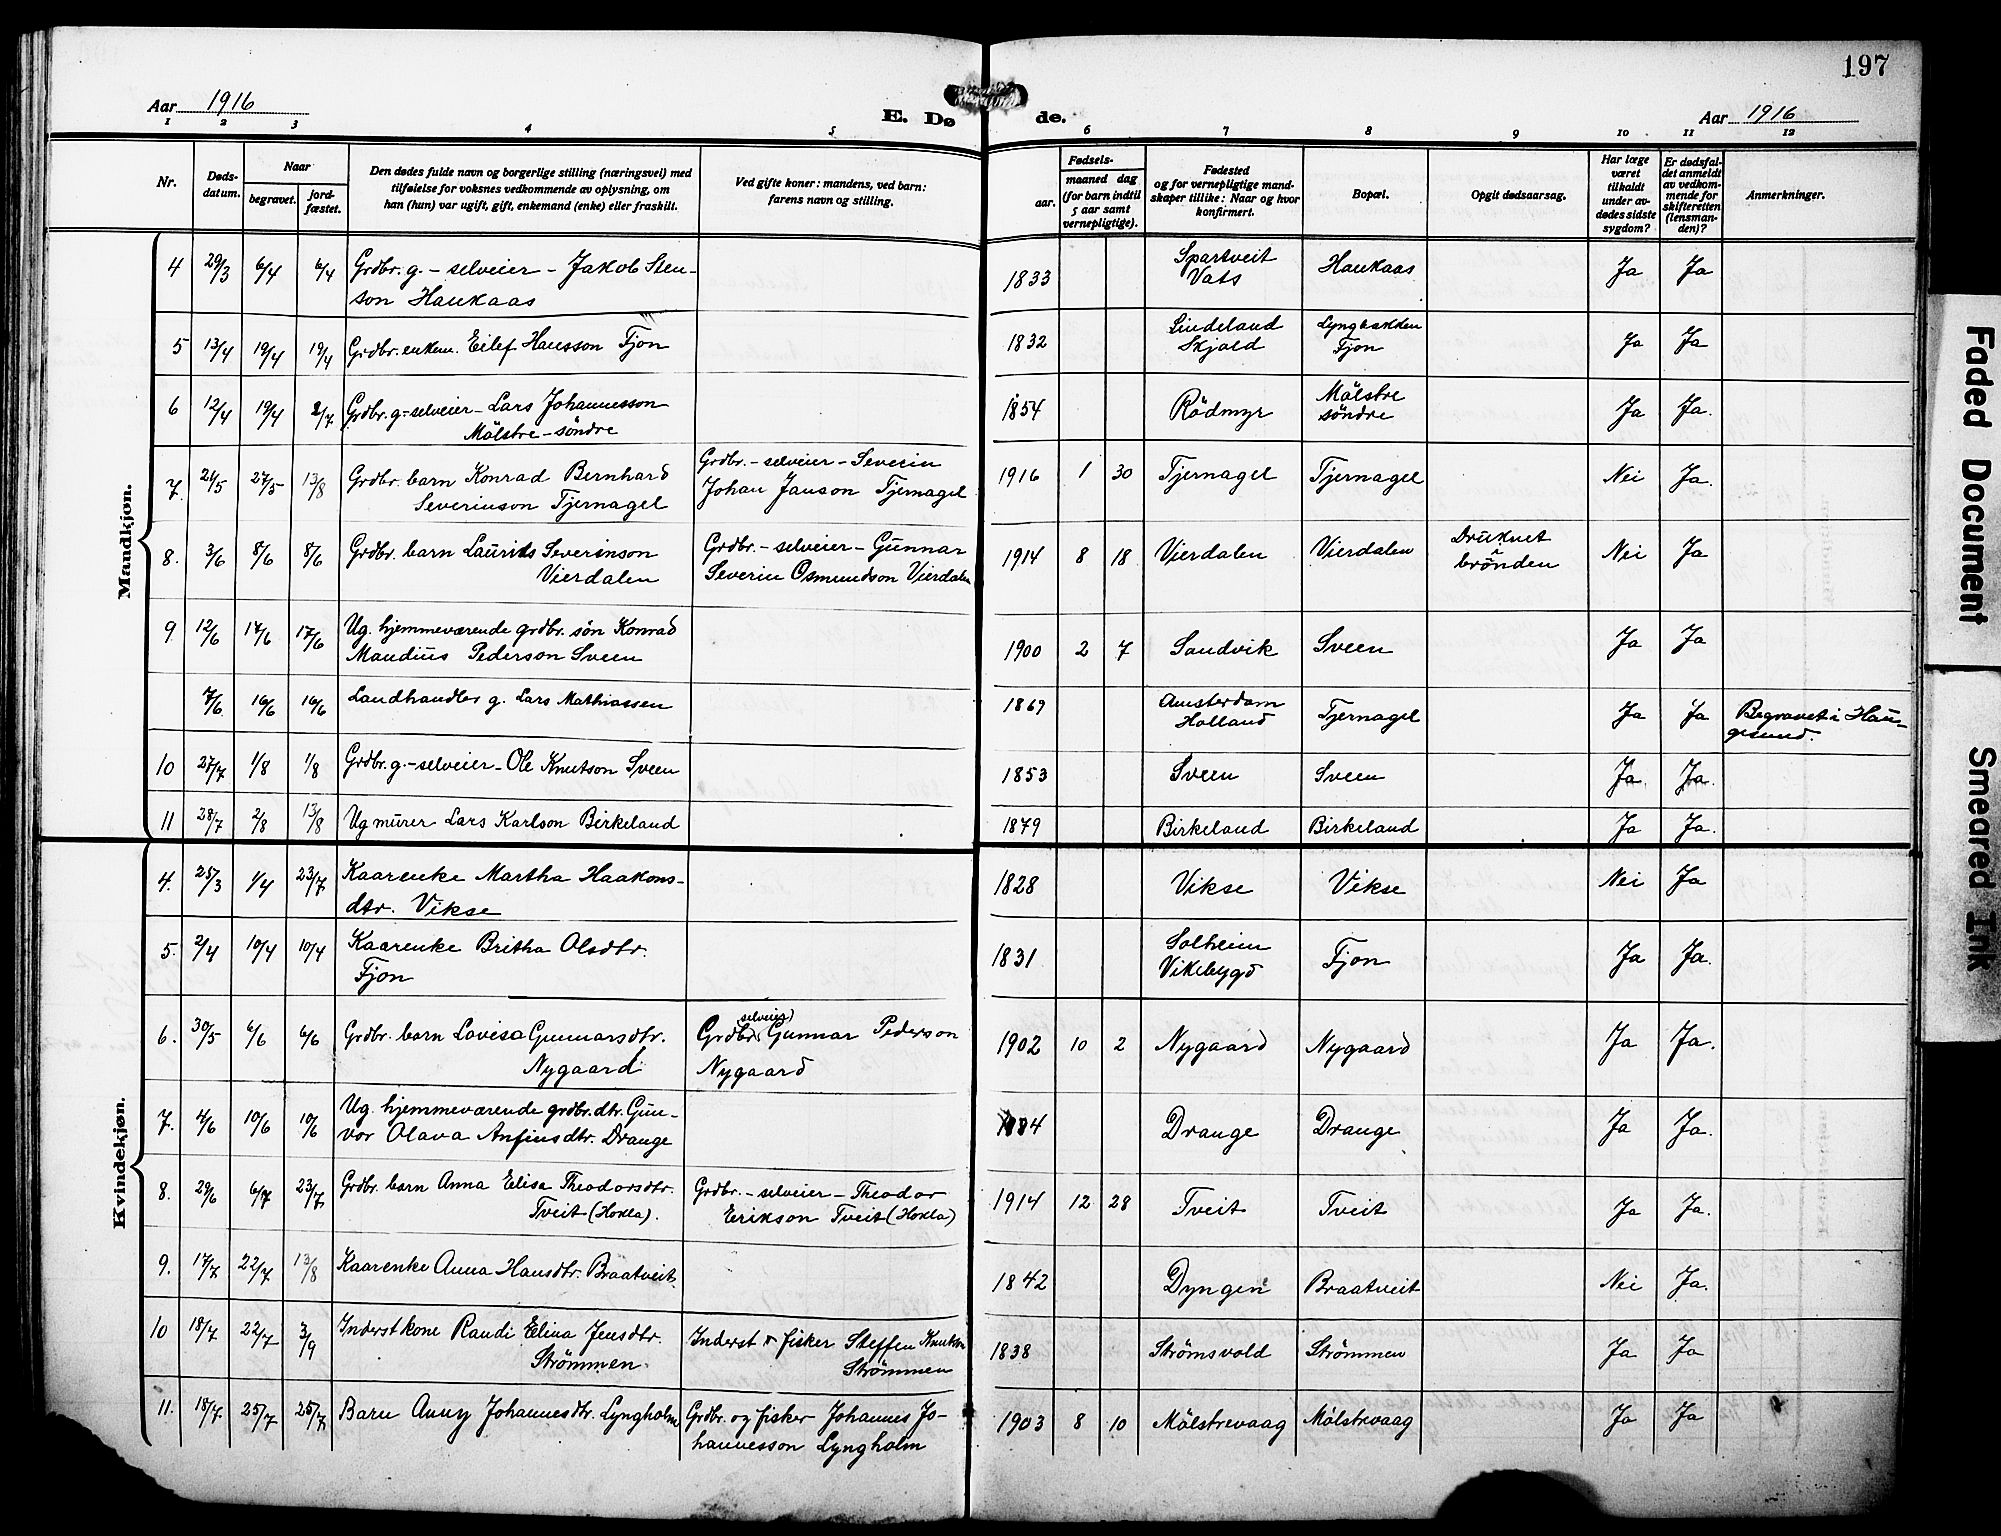 197
Aar 1916
E. Dø
de.
Aar 1916
1 2 3 4 5 6 7 8 9 10 11 12
Nr.
Døds-
datum.
Naar
begravet.
jord-
fæstet.
Den dødes fulde navn og borgerlige stilling (næringsvei) med
tilføielse for voksnes vedkommende av oplysning, om
han (hun) var ugift, gift, enkemand (enke) eller fraskilt.
Ved gifte koner: mandens, ved barn:
farens navn og stilling.
aar.
Fødsels-
maaned dag
(for barn indtil
5 aar samt
vernepligtige).
Fødested
og for vernepligtige mand-
skaper tillike: Naar og hvor
konfirmert.
Bopæl.
Opgit dødsaarsag.
Har læge
været
tilkaldt
under av-
dødes sidste
sygdom?
Er dødsfal-
det anmeldt
av vedkom-
mende for
skifteretten
(lensman-
den)?
Anmerkninger.
Mandkjøn.
4 29/3 6/4 6/4 Grdbr. g. - selveier - Jakob Sten-
son Haukaas 1833 Spartveit
Vats Haukaas Ja Ja
5 13/4 19/4 19/4 Grdbr. enkem. Eilef Hansson Fjon 1832 Lindeland
Skjold Lyngbakken
Fjon Ja Ja
6 12/4 19/4 2/7 Grdbr. g. - selveier - Lars Johannesson
Mölstre - söndre 1854 Rödmyr Mölstre
söndre Ja Ja.
7. 21/5 27/5 13/8 Grdbr. barn Konrad Bernhard
Severinson Tjernagel Grdbr. - selveier - Severin
Johan Janson Tjernagel 1916 1 30 Tjernagel Tjernagel Nei Ja.
8. 3/6 8/6 8/6 Grdbr. barn Laurits Severinson
Vierdalen Grdbr. - selveier - Gunnar
Severin Osmundson Vierdalen 1914 8 18 Vierdalen Vierdalen Druknet
i
brönden Nei Ja
9. 12/6 17/6 17/6 Ug. hjemmeværende grdbr. sön Konrad
Mandius Pederson Sveen 1900 2 7 Sandvik Sveen Ja Ja
7/6 16/6 16/6 Landhandler g. Lars Mathiassen 1869 Amsterdam
Holland Tjernagel Ja Ja Begravet i Hau-
gesund.
10 27/7 1/8 1/8 Grdbr. g. - selveier - Ole Knutson Sveen 1853 Sveen Sveen Ja. Ja.
11 28/7 2/8 13/8 Ug murer Lars Karlson Birkeland 1879 Birkeland Birkeland Ja Ja.
Kvindekjøn.
4. 25/3 1/4 23/7 Kaarenke Martha Haakons-
dtr. Vikse 1828 Vikse Vikse Nei Ja
5. 2/4 10/4 10/4 Kaarenke Britha Olsdtr.
Fjon 1831 Solheim
Vikebygd Fjon Ja Ja.
6. 30/5 6/6 6/6 Grdbr. barn Lovisa Gunnarsdtr.
Nygaard Grdbr. (selveier) Gunnar Pederson
Nygaard 1902 10 2 Nygaard Nygaard Ja Ja.
7. 4/6 10/6 10/6 Ug. hjemmeværende grdbr. dtr. Gun-
vor Olava Anfinsdtr. Drange Drange Drange Ja Ja.
8. 29/6 6/7 23/7 Grdbr. barn Anna Elisa Theodorsdtr.
Tveit (Hokla). Grdbr. - selveier - Theodor
Erikson Tveit (Hokla) 1914 12 28 Tveit Tveit Ja Ja.
9. 17/7 22/7 13/8 Kaarenke Anna Hansdtr. Braatveit. 1842 Dyngen Braatveit Nei Ja.
10 18/7 22/7 3/9 Inderst kone Randi Elina Jensdtr.
Strömmen. Inderst & fisker Steffen Knutson
Strömmen 1838 Strömsvold Strömmen Ja Ja
11. 18/7 25/7 25/7 Barn Anny Johannesdtr. Lyngholm Grdbr. og fisker Johannes Jo-
hannesson Lyngholm 1903 8 10 Mölstrevaag Mölstrevaag Ja Ja
Faded Document
Smeared Ink